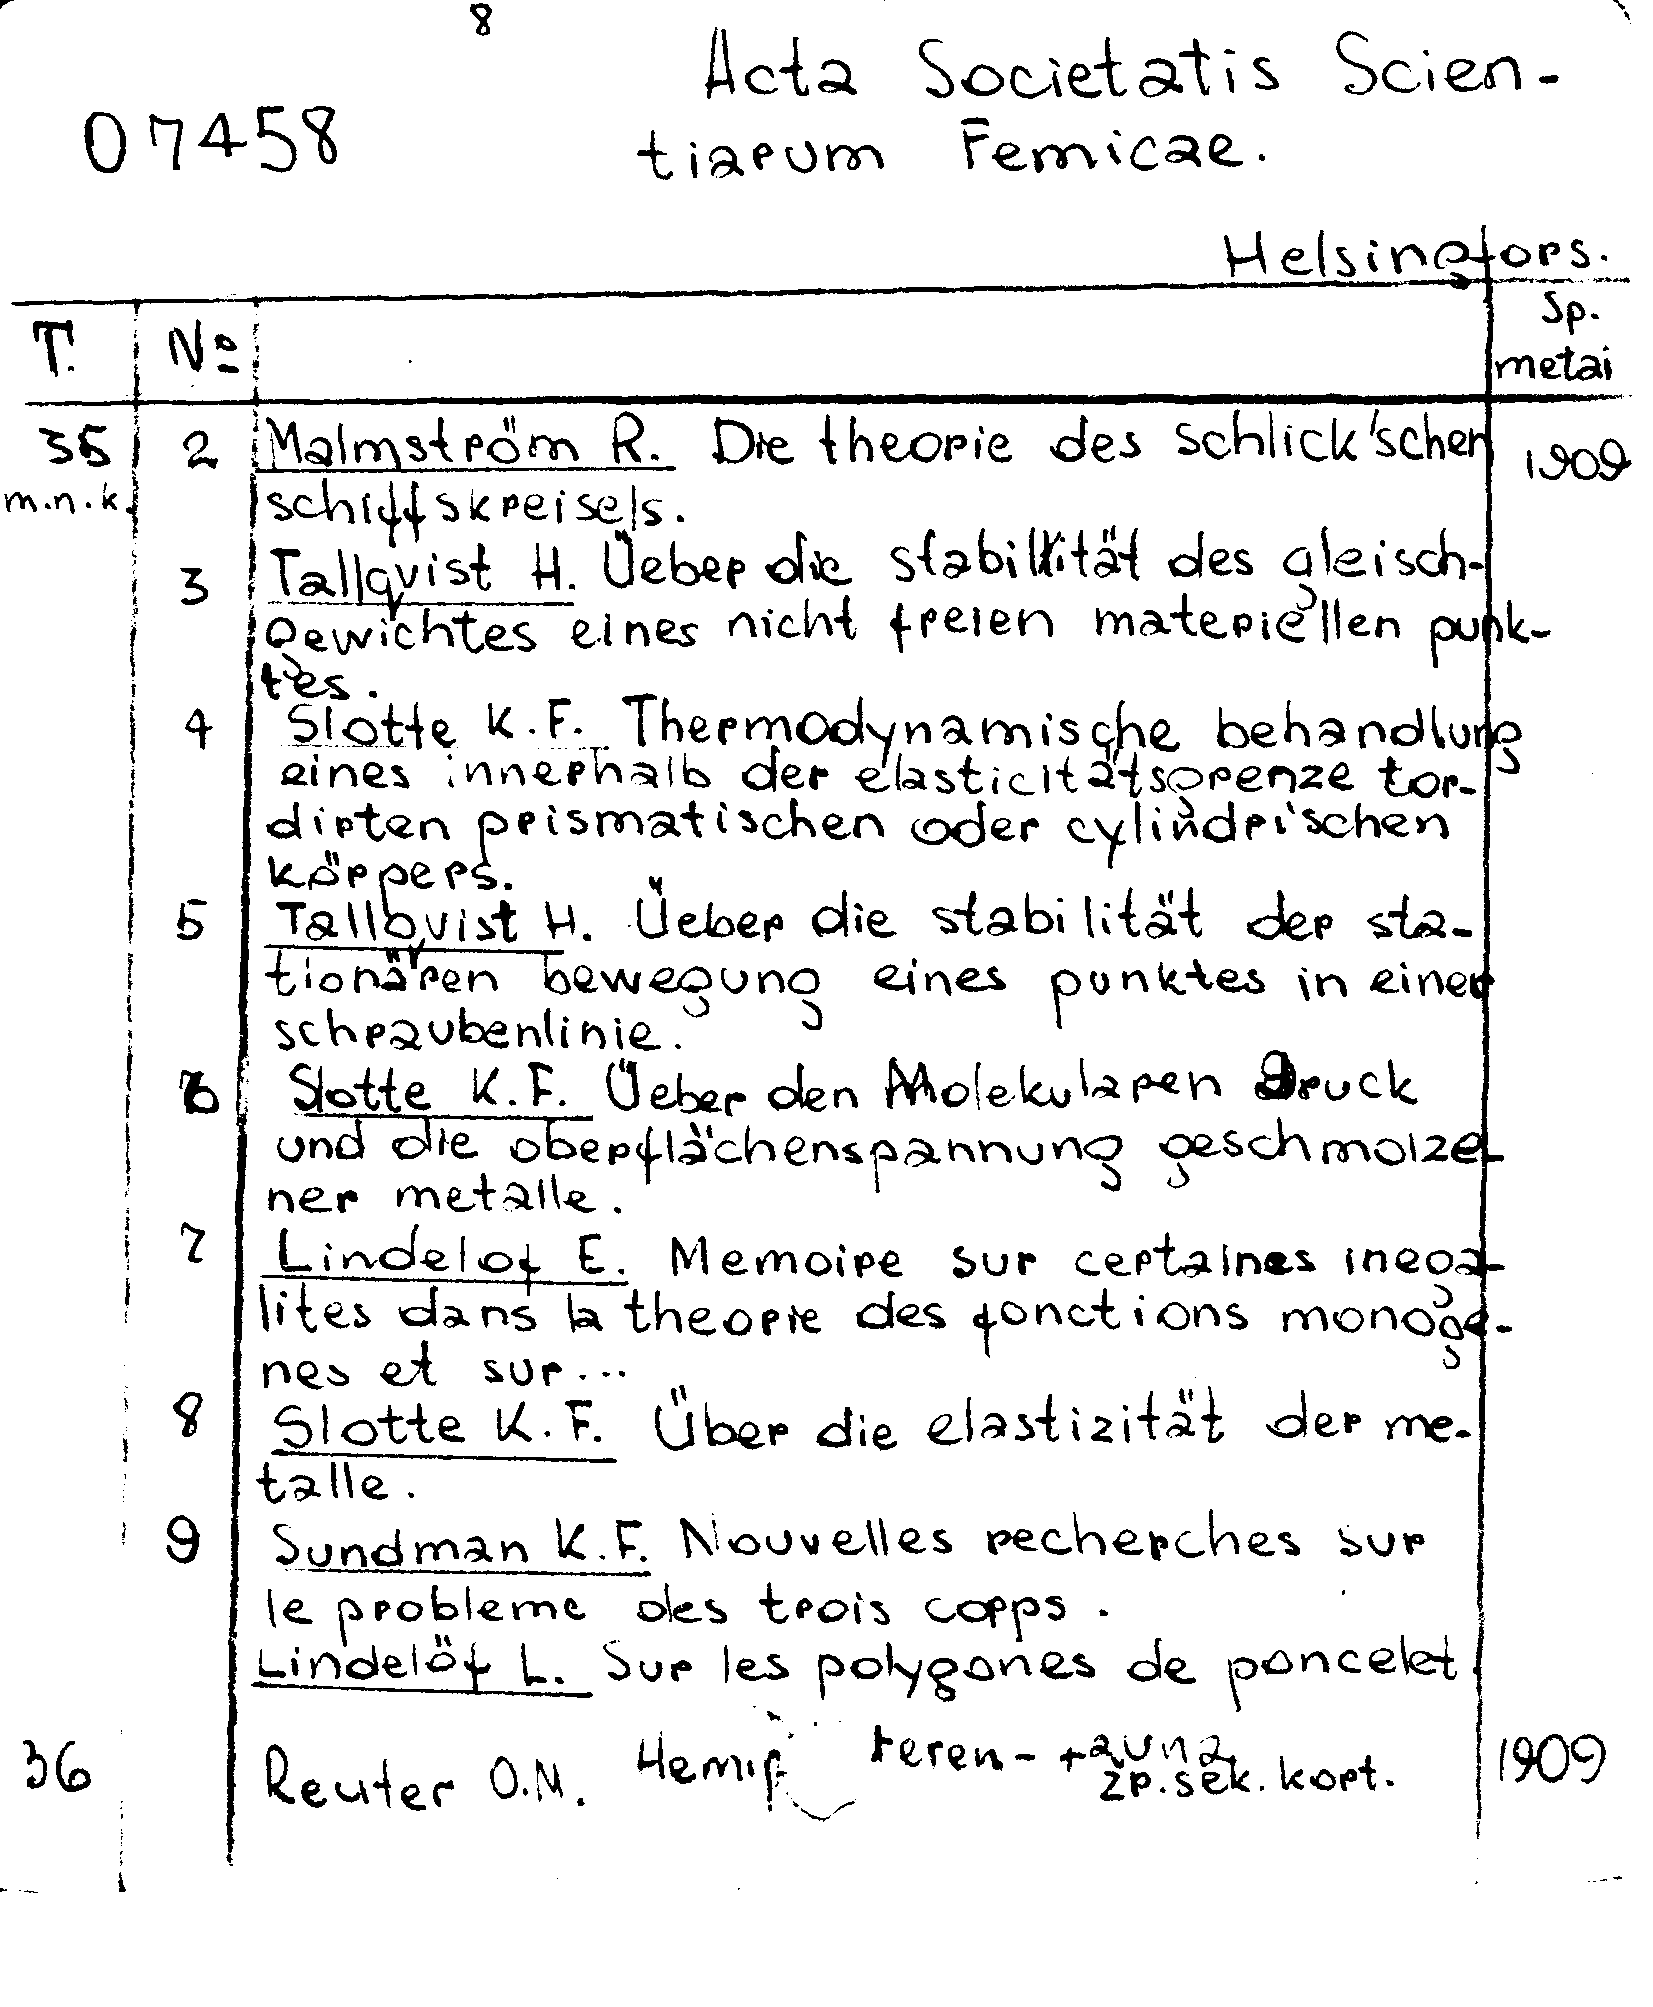 8
Acta Societatis Scien-
07458
tiarum Femicae.
Helsingfors.
T. № Sp. metai
35 2 Malmström R. Die theorie des schlick'schen 1909
m.n.k. schiffskreisels.
3 Tallqvist H. Üeber die stabillität des gleisch-
gewichtes eines nicht freien materiellen punk-
tes.
4 Slotte K.F. Thermodynamische behandlung
eines innerhalb der elasticitätsgrenze tor-
dirten prismatischen oder cylindrischen
körpers.
5 Tallqvist H. Üeber die stabilität der sta-
tionären bewegung eines punktes in einer
schraubenlinie.
6 Slotte K.F. Üeber den Molekularen Druck
und die oberflächenspannung geschmolze-
ner metalle.
7 Lindelof E. Memoire sur certaines inega-
lites dans la theorie des fonctions monoge-
nes et sur...
8 Slotte K.F. Über die elastizität der me-
talle.
9 Sundman K.F. Nouvelles recherches sur
le probleme des trois corps.
Lindelöf L. Sur les polygones de poncelet
36 Reuter O.M. Hemip teren-fauna 1909
žr. sek. kort.